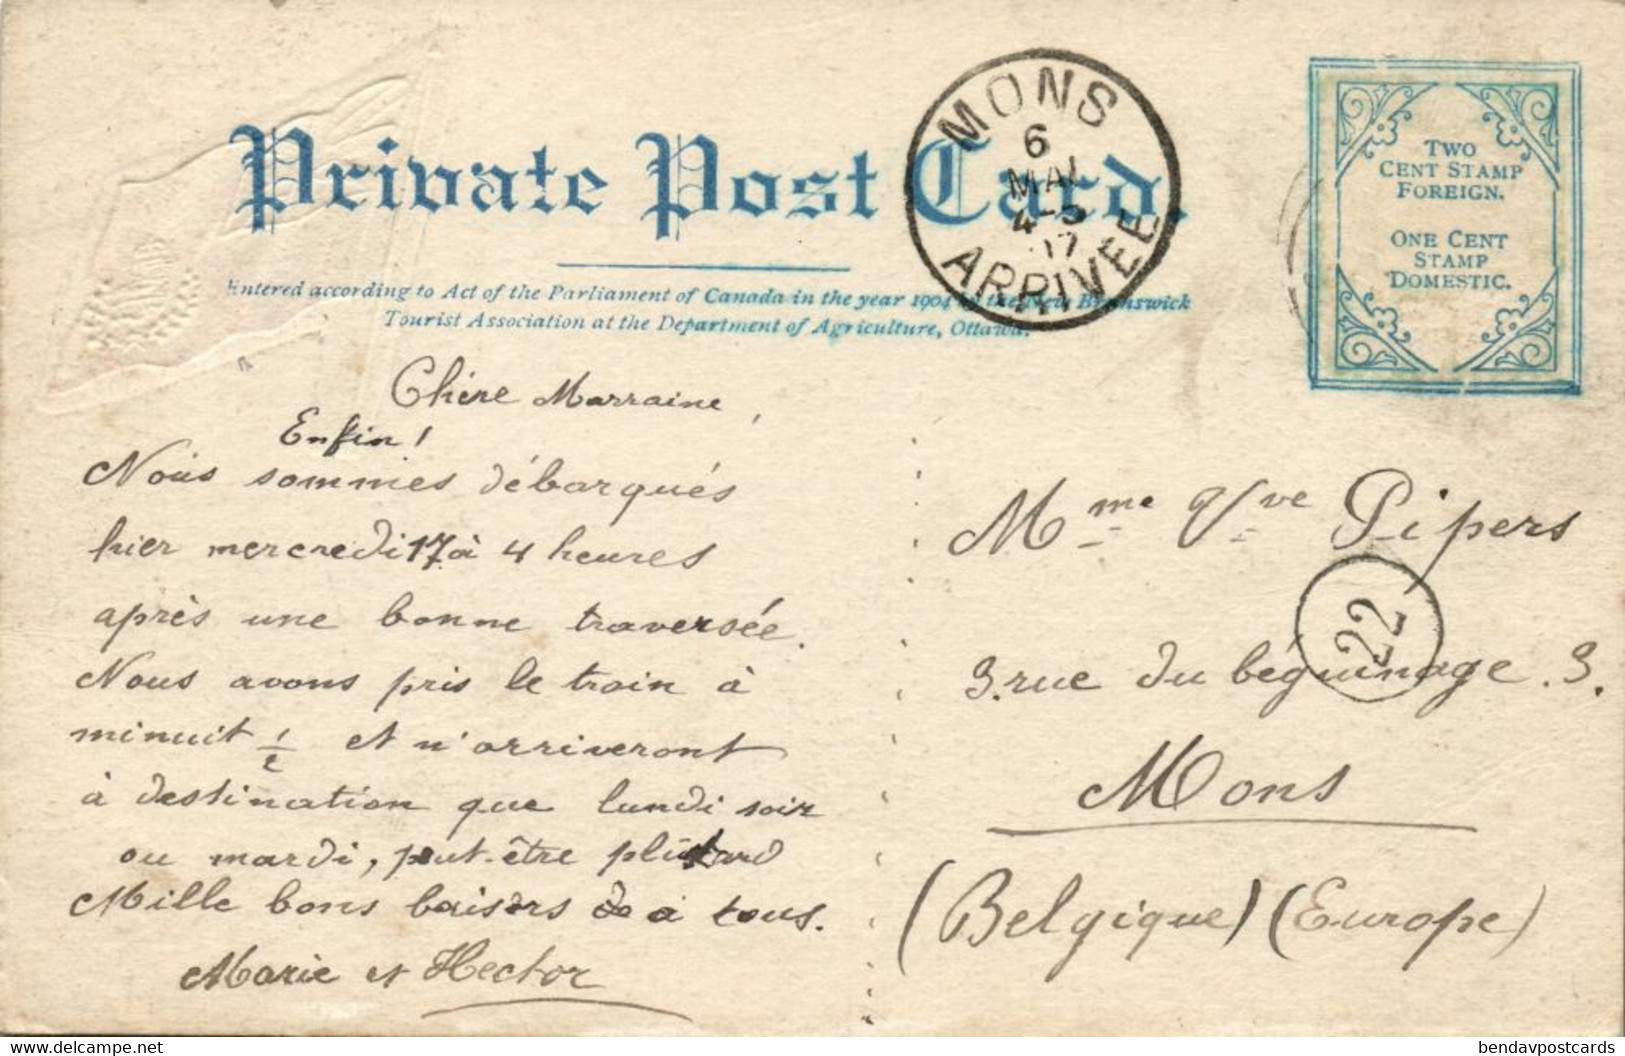 Private Post Card.
Entered according to Act of the Parliament of Canada in the year 1904 by the New Brunswick
Tourist Association at the Department of Agriculture, Ottawa.
MONS
6
MAI
4-5
07
ARRIVÉE
TWO
CENT STAMP
FOREIGN.
ONE CENT
STAMP
DOMESTIC.
Chère Marraine,
Enfin!
Nous sommes débarqués
hier mercredi 17 à 4 heures
après une bonne traversée.
Nous avons pris le train à
minuit 1/2 et n'arriveront
à destination que lundi soir
ou mardi, peut-être plus tard
Mille bons baisers de à tous.
Marie et Hector
Mme Vve Pipers
22
3. rue du béguinage. 3.
Mons
(Belgique) (Europe)
https://www.delcampe.net
bendavpostcards